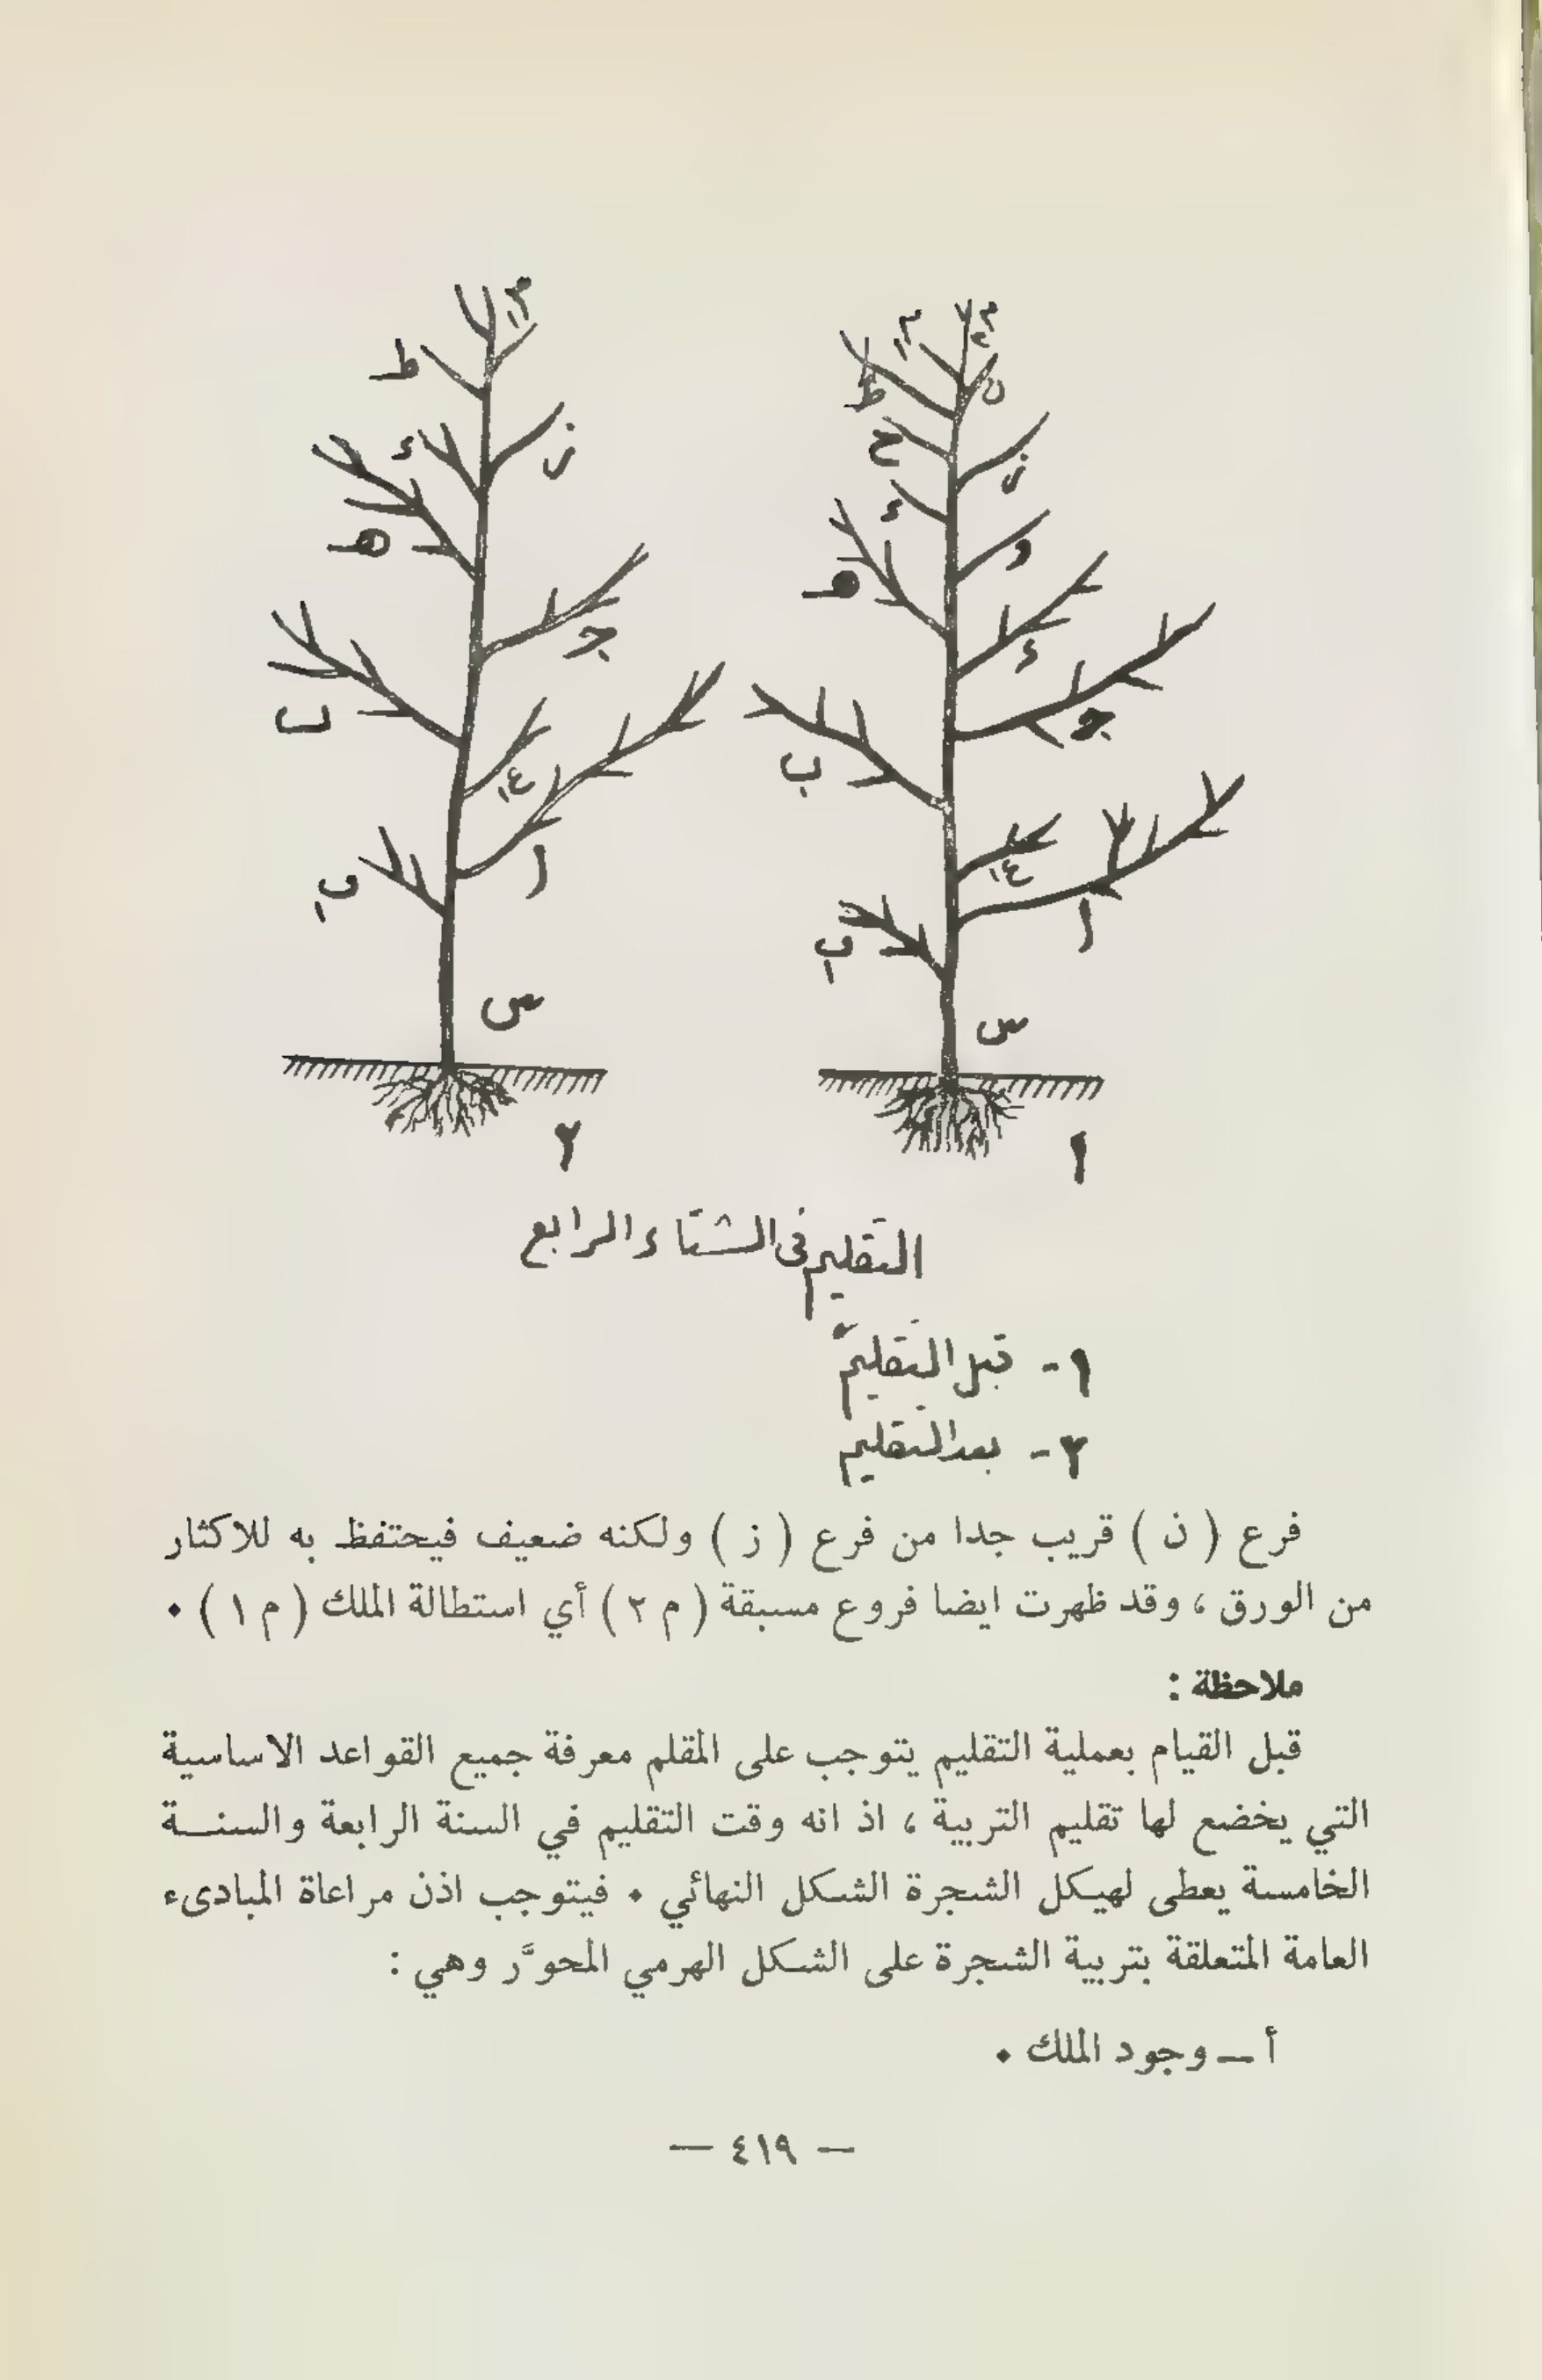 م١
م٢
م١
ط
ن
ط
ح
ز
ء
ز
ء
هـ
و
هـ
جـ
ء
ب
جـ
ب
ع١
ا
ع١
ب١
ا
ب١
س
س
٢
١
التقليم في الشتاء الرابع
١- قبل التقليم
٢- بعد التقليم
فرع ( ن ) قريب جدا من فرع ( ز ) ولكنه ضعيف فيحتفظ به للاكثار
من الورق ، وقد ظهرت ايضا فروع مسبقة ( م ٢ ) أي استطالة الملك ( م ١ ) ٠
ملاحظة :
قبل القيام بعملية التقليم يتوجب على المقلم معرفة جميع القواعد الاساسية
التي يخضع لها تقليم التربية ، اذ انه وقت التقليم في السنة الرابعة والسنــة
الخامسة يعطى لهيكل الشجرة الشكل النهائي ٠ فيتوجب اذن مراعاة المبادىء
العامة المتعلقة بتربية الشجرة على الشكل الهرمي المحوَّر وهي :
أ ــ وجود الملك ٠
— ٤١٩ —